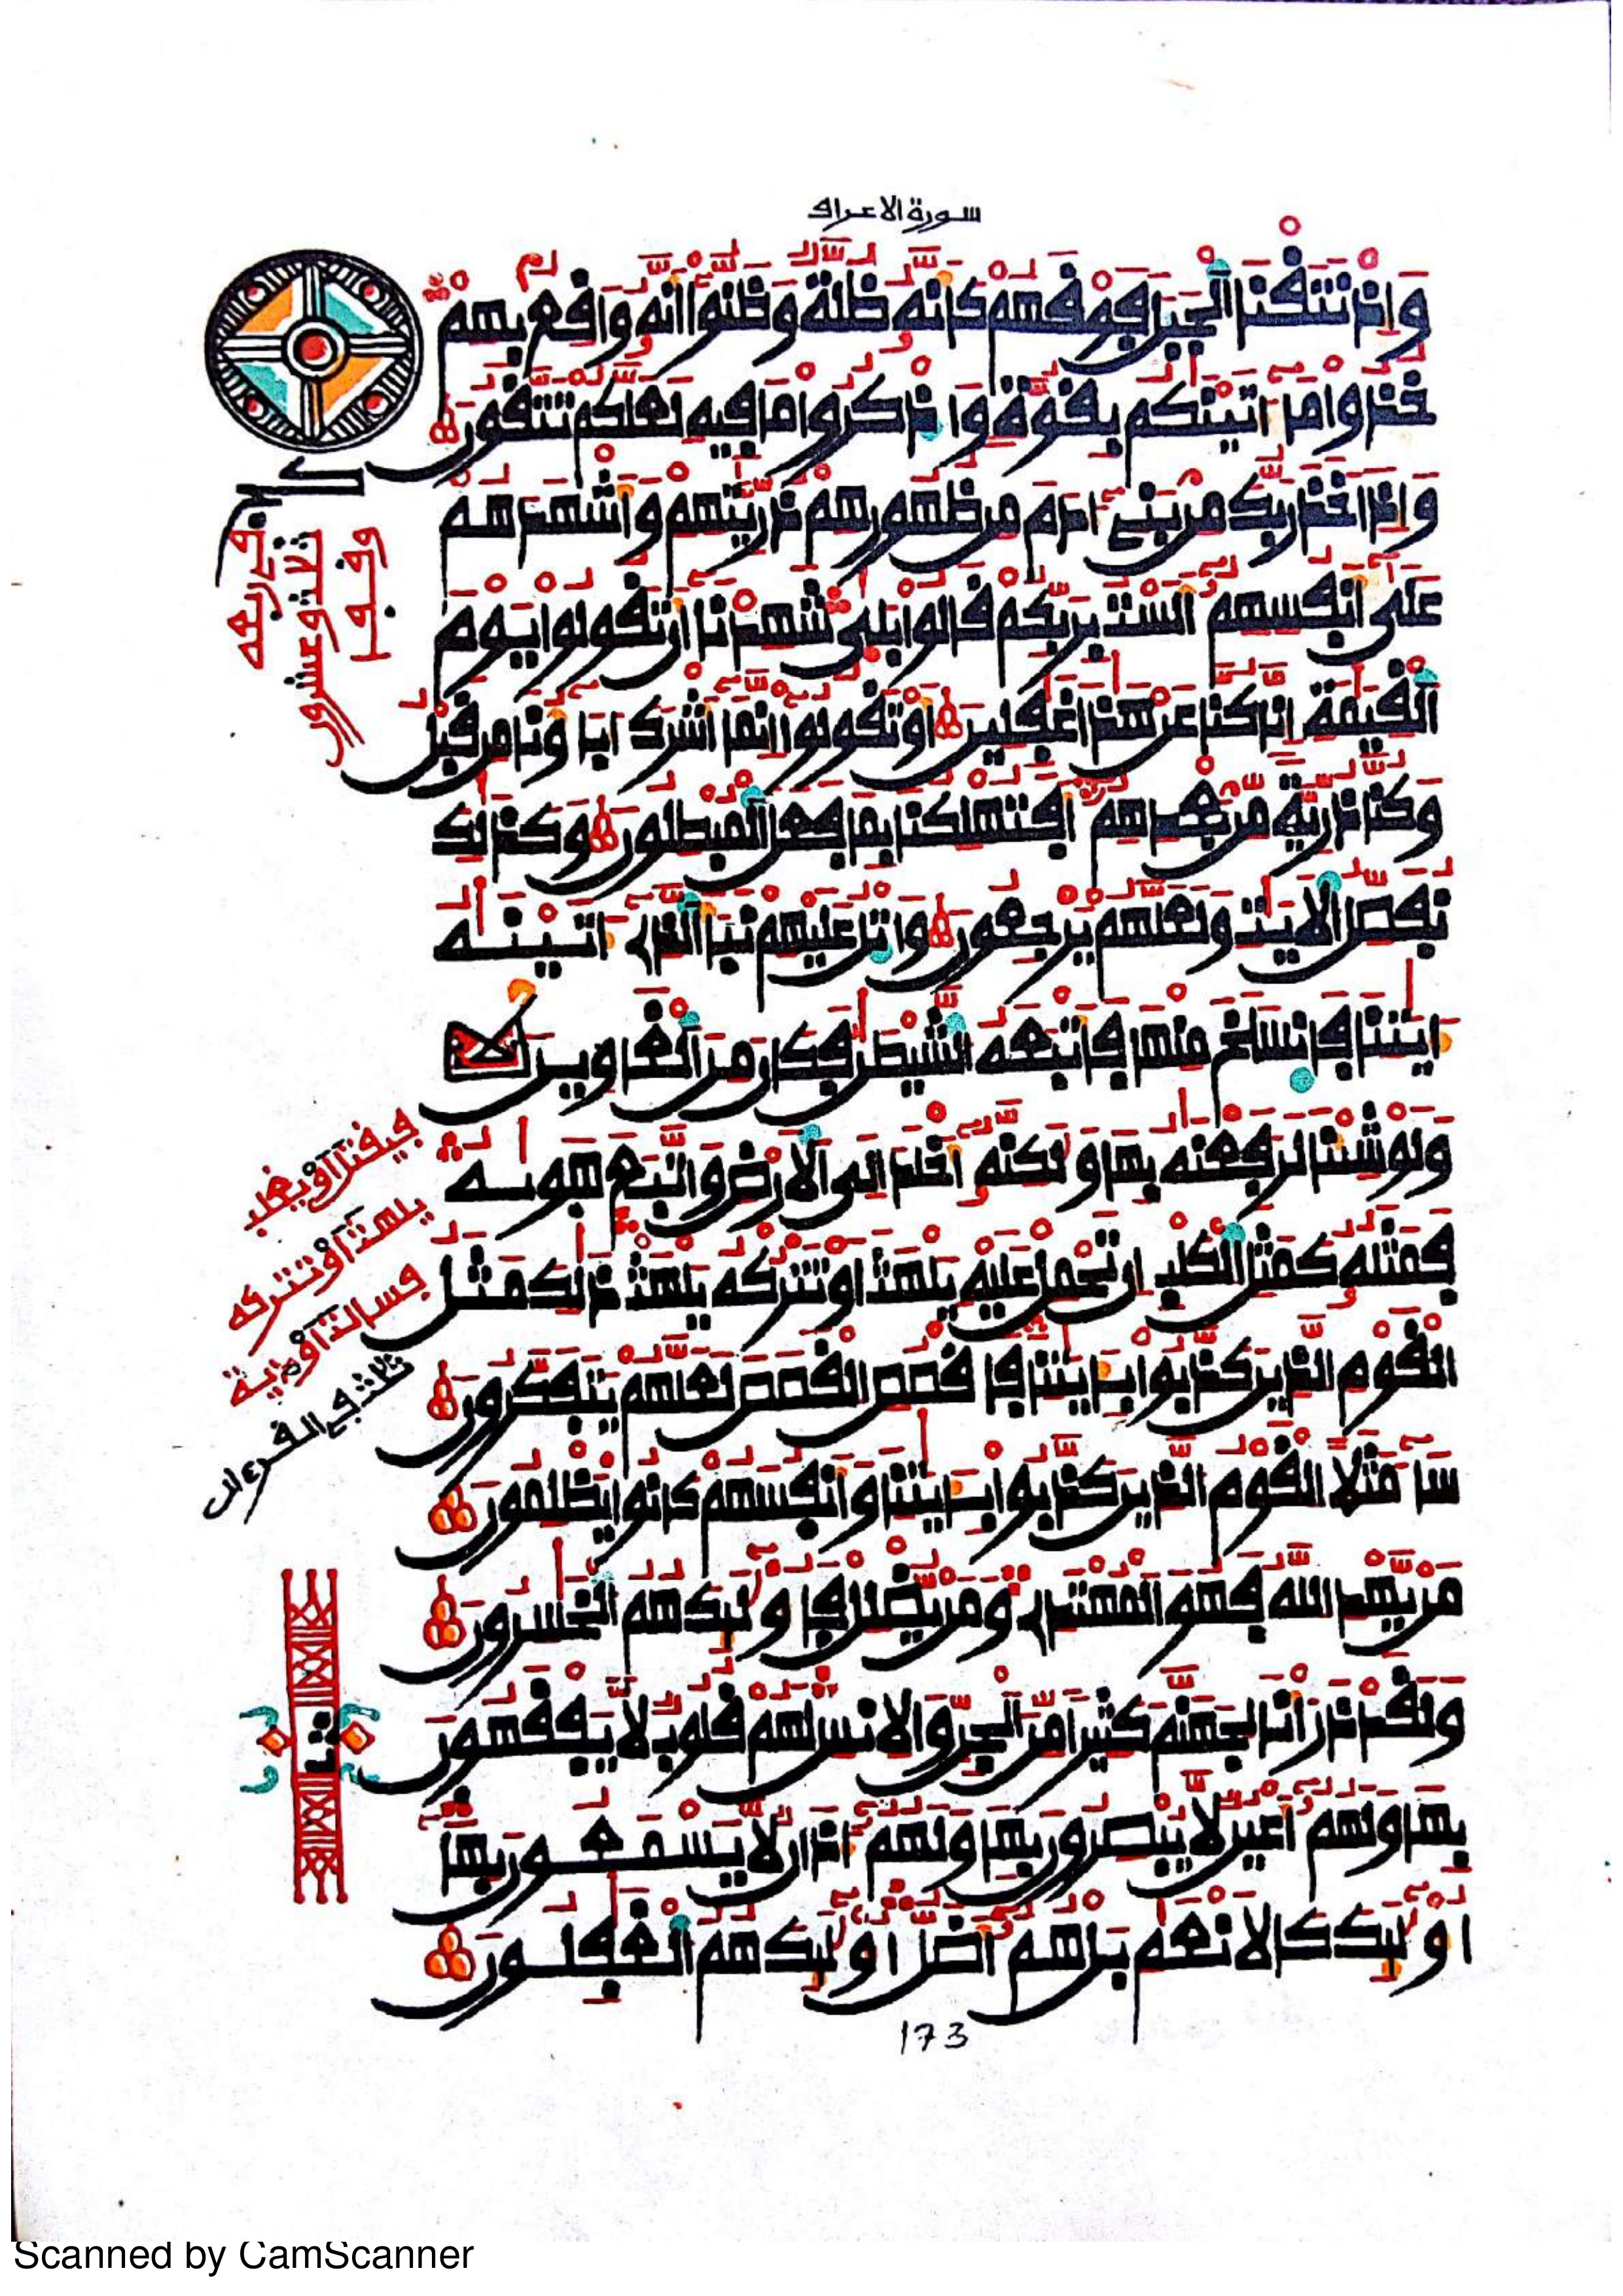 سورة الاعراف
وَإِذ نَّتَقْنَا اَلْجَبَلَ فَوْقَهُمْ كَأَنَّهُۥ ظُلَّةٞ وَظَنُّوٓاْ أَنَّهُۥ وَاقِعُۢ بِهِمْ
خُذُواْ مَآ ءَاتَيْنَٰكُم بِقُوَّةٖ وَاذْكُرُواْ مَا فِيهِ لَعَلَّكُمْ تَتَّقُونَ
وَإِذَ اَخَذَ رَبُّكَ مِنۢ بَنِےٓ ءَادَمَ مِن ظُهُورِهِمْ ذُرِّيَّٰتِهِمْ وَأَشْهَدَهُمْ
عَلَىٰٓ أَنفُسِهِمُۥٓ أَلَسْتُ بِرَبِّكُمْ قَالُواْ بَلَىٰ شَهِدْنَآ أَن تَقُولُواْ يَوْمَ
اَلْقِيَٰمَةِ إِنَّا كُنَّا عَنْ هَٰذَا غَٰفِلِينَ أَوْ تَقُولُوٓاْ إِنَّمَآ أَشْرَكَ ءَابَآؤُنَا مِن قَبْلُ
وَكُنَّا ذُرِّيَّةٗ مِّنۢ بَعْدِهِمُۥٓ أَفَتُهْلِكُنَا بِمَا فَعَلَ اَلْمُبْطِلُونَ وَكَذَٰلِكَ
نُفَصِّلُ اُلَايَٰتِ وَلَعَلَّهُمْ يَرْجِعُونَ وَاتْلُ عَلَيْهِمْ نَبَأَ اَلذِےٓ ءَاتَيْنَٰهُ
ءَايَٰتِنَا فَانسَلَخَ مِنْهَا فَأَتْبَعَهُ اُلشَّيْطَٰنُ فَكَانَ مِنَ اَلْغَاوِينَ
وَلَوْ شِئْنَا لَرَفَعْنَٰهُ بِهَا وَلَٰكِنَّهُۥٓ أَخْلَدَ إِلَى اَلَارْضِ وَاتَّبَعَ هَوَىٰهُ
فَمَثَلُهُۥ كَمَثَلِ اِلْكَلْبِ إِن تَحْمِلْ عَلَيْهِ يَلْهَثَ اَوْ تَتْرُكْهُ يَلْهَث ذَّٰلِكَ مَثَلُ
اُلْقَوْمِ اِلذِينَ كَذَّبُواْ بِـَٔايَٰتِنَا فَاقْصُصِ اِلْقَصَصَ لَعَلَّهُمْ يَتَفَكَّرُونَ
سَآءَ مَثَلاً اِلْقَوْمُ اُلذِينَ كَذَّبُواْ بِـَٔايَٰتِنَا وَأَنفُسَهُمْ كَانُواْ يَظْلِمُونَ
مَنْ يَّهْدِ اِللَّهُ فَهُوَ اَلْمُهْتَدِے وَمَنْ يُّضْلِلْ فَأُوْلَٰٓئِكَ هُمُ اُلْخَٰسِرُونَ
وَلَقَدْ ذَرَأْنَا لِجَهَنَّمَ كَثِيراٗ مِّنَ اَلْجِنِّ وَالِانسِ لَهُمْ قُلُوبٞ لَّا يَفْقَهُونَ
بِهَا وَلَهُمُۥٓ أَعْيُنٞ لَّا يُبْصِرُونَ بِهَا وَلَهُمُۥٓ ءَاذَانٞ لَّا يَسْمَعُونَ بِهَآ
أُوْلَٰٓئِكَ كَالَانْعَٰمِ بَلْ هُمُۥٓ أَضَلُّ أُوْلَٰٓئِكَ هُمُ اُلْغَٰفِلُونَ
في ربعه
ثلاث وعشرون
وقفا
فيقتل او يغلب
يلهث او تتركه
ثلاث في القرءان
ثمن
173
Scanned by CamScanner